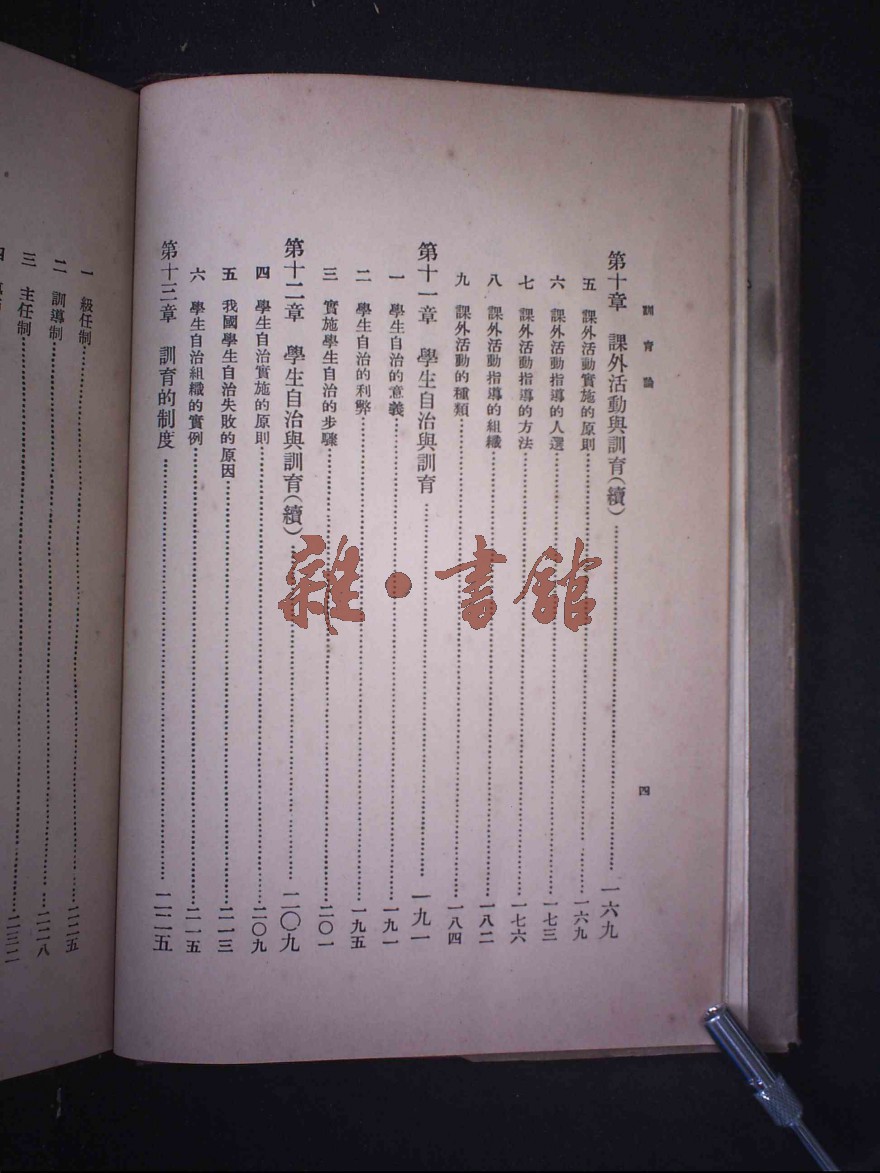 訓育論
四
第十章 課外活動與訓育（續）……一六九
五 課外活動實施的原則……一六九
六 課外活動指導的人選……一七三
七 課外活動指導的方法……一七六
八 課外活動指導的組織……一八二
九 課外活動的種類……一八四
第十一章 學生自治與訓育……一九一
一 學生自治的意義……一九一
二 學生自治的利弊……一九五
三 實施學生自治的步驟……二〇一
第十二章 學生自治與訓育（續）……二〇九
四 學生自治實施的原則……二〇九
五 我國學生自治失敗的原因……二一三
六 學生自治組織的實例……二一五
第十三章 訓育的制度……二二五
一 級任制……二二五
二 訓導制……二二八
三 主任制……二三二
四
雜·書館